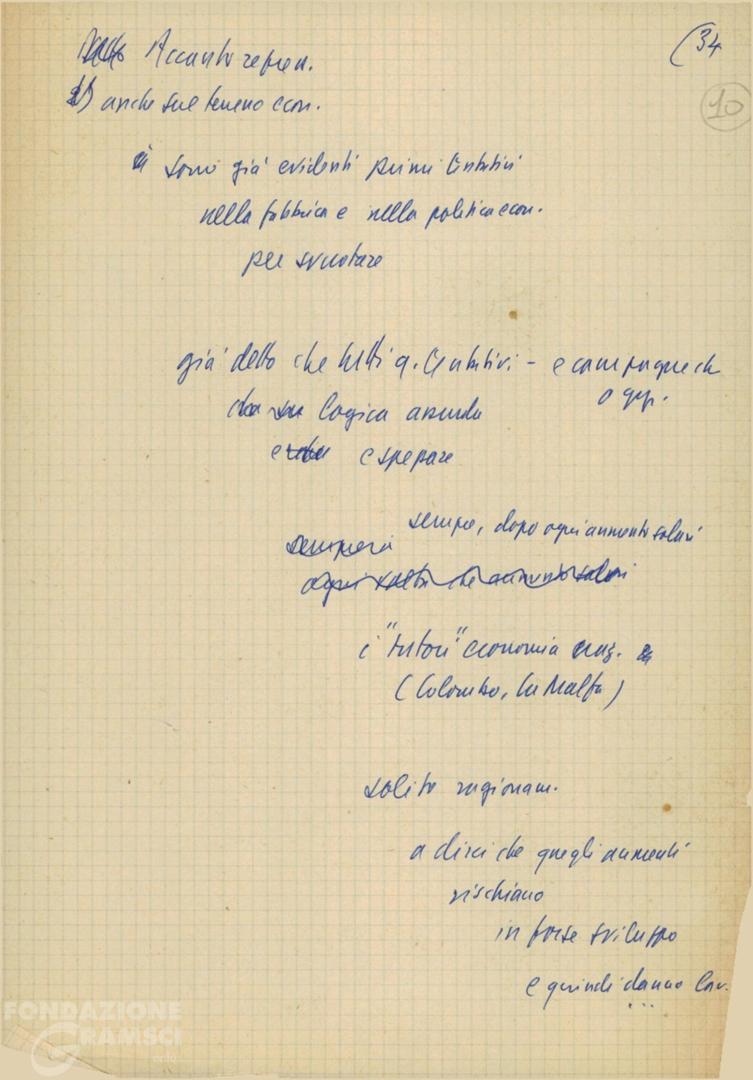 (34
Accanto repren.
10
anche sul terreno econ.
sono già evidenti primi tentativi
nella fabbrica e nella politica econ.
per svuotare
già detto che tutti q. tentativi – e campagne ch
logica assurda
e
sempre, dopo ogni aumento salari
sempre
ogni volta che aumento salari
i "tutori" economia naz.
(Colombo, La Malfa)
solito ragionam.
a dirci che quegli aumenti
rischiano
in forse sviluppo
e quindi danno lav.
...
FONDAZIONE
GRAMSCI
onlus